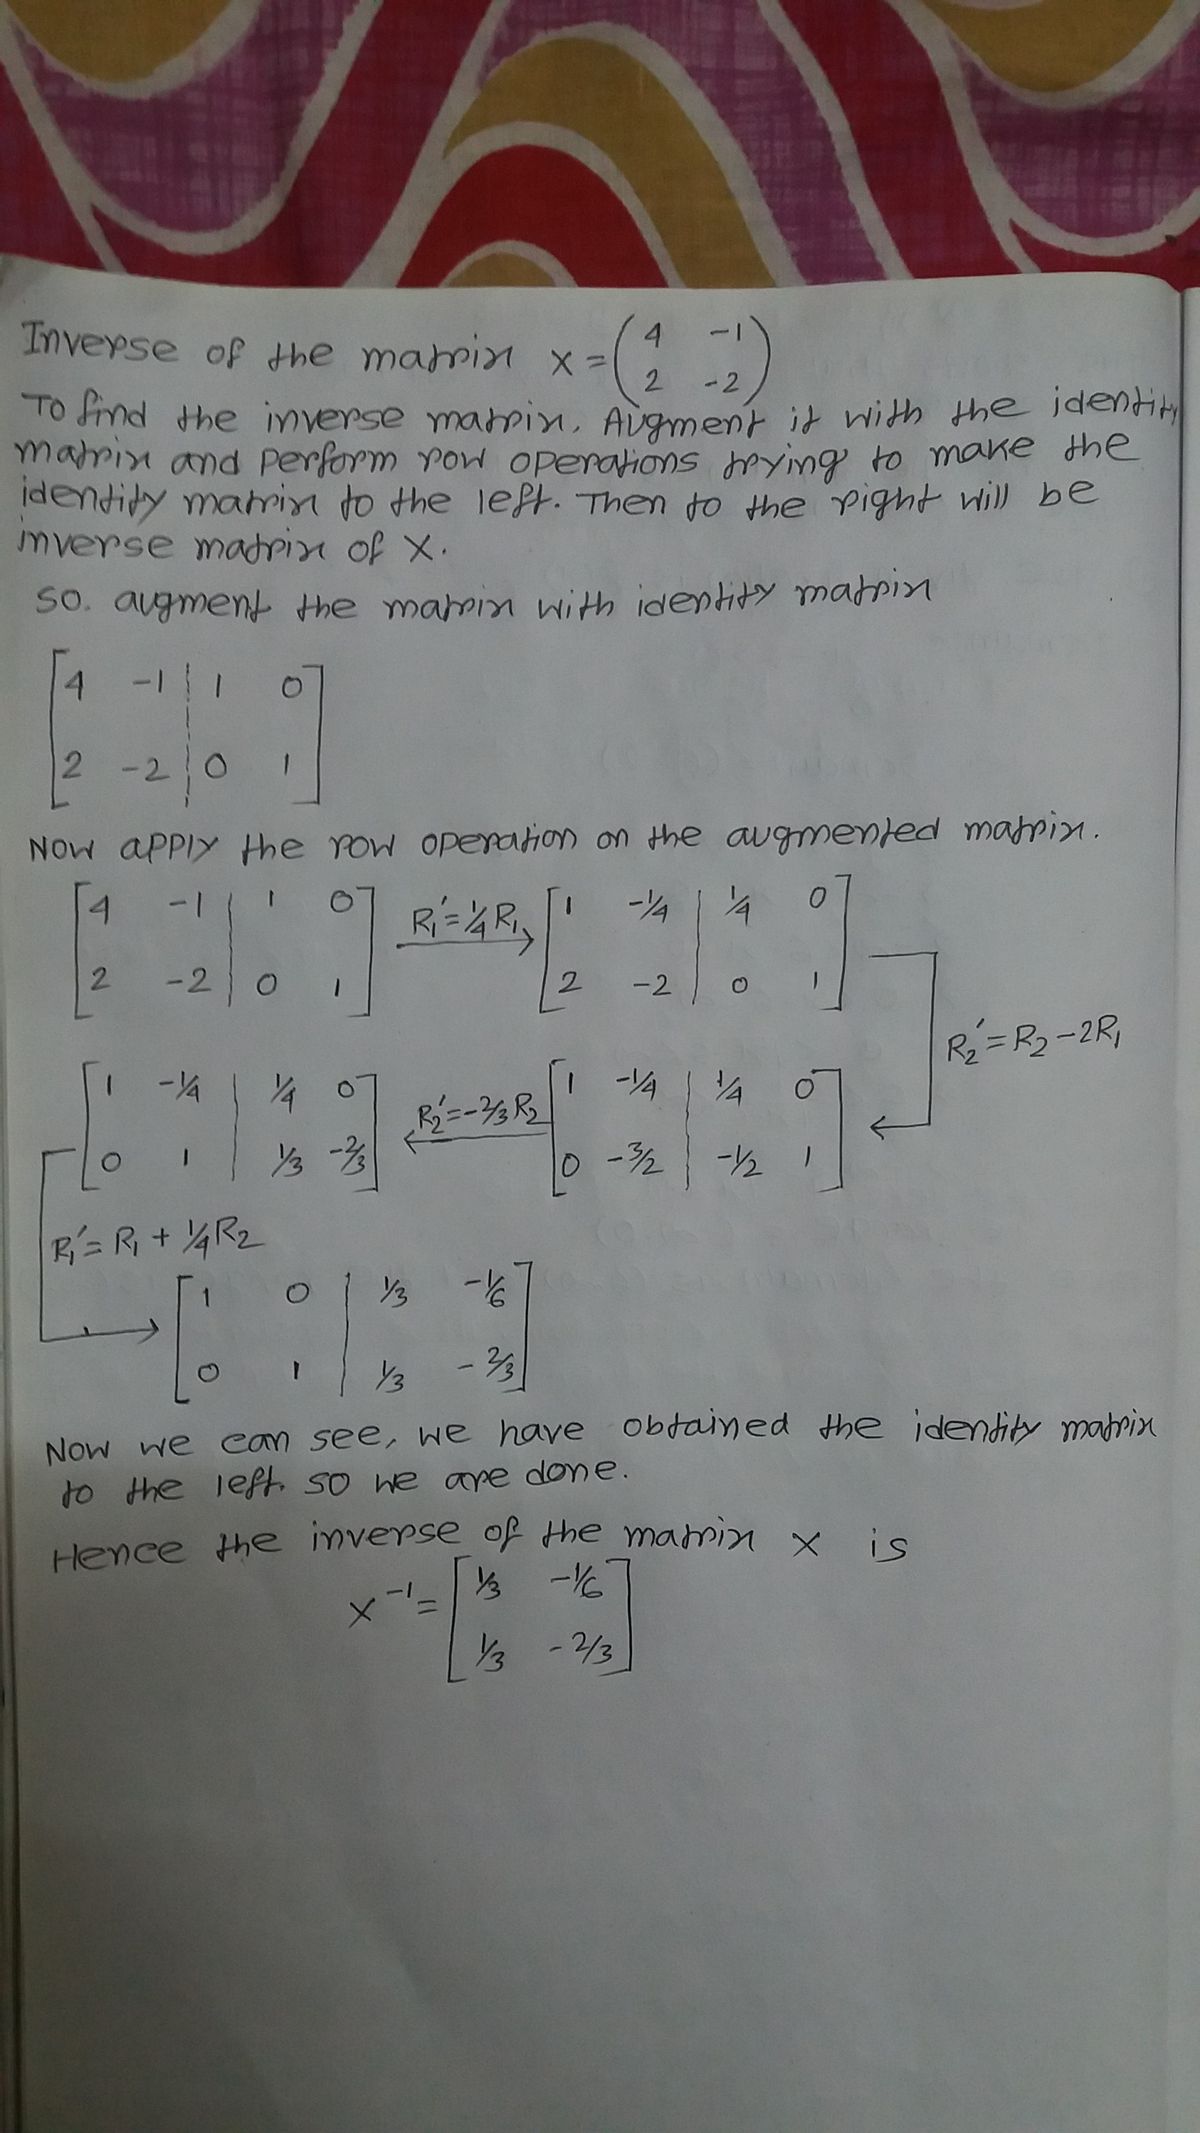 Inverse of the matrix x = ( 4 -1
2 -2 )
To find the inverse matrix, Augment it with the identity
matrix and perform row operations trying to make the
identity matrix to the left. Then to the right will be
inverse matrix of X.
so. augment the matrix with identity matrix
[ 4 -1 | 1 0
2 -2 | 0 1 ]
Now apply the row operation on the augmented matrix.
[ 4 -1 | 1 0 ] R₁′=¼R₁ [ 1 -1/4 | 1/4 0 ]
[ 2 -2 | 0 1 ] [ 2 -2 | 0 1 ]
R₂′=R₂-2R₁
[ 1 -1/4 | 1/4 0 ] R₂′=-2/3R₂ [ 1 -1/4 | 1/4 0 ]
[ 0 1 | 1/3 -2/3 ] [ 0 -3/2 | -1/2 1 ]
R₁′=R₁+¼R₂
[ 1 0 | 1/3 -1/6
0 1 | 1/3 -2/3 ]
Now we can see, we have obtained the identity matrix
to the left. so we are done.
Hence the inverse of the matrix x is
x⁻¹= [ 1/3 -1/6
1/3 -2/3 ]